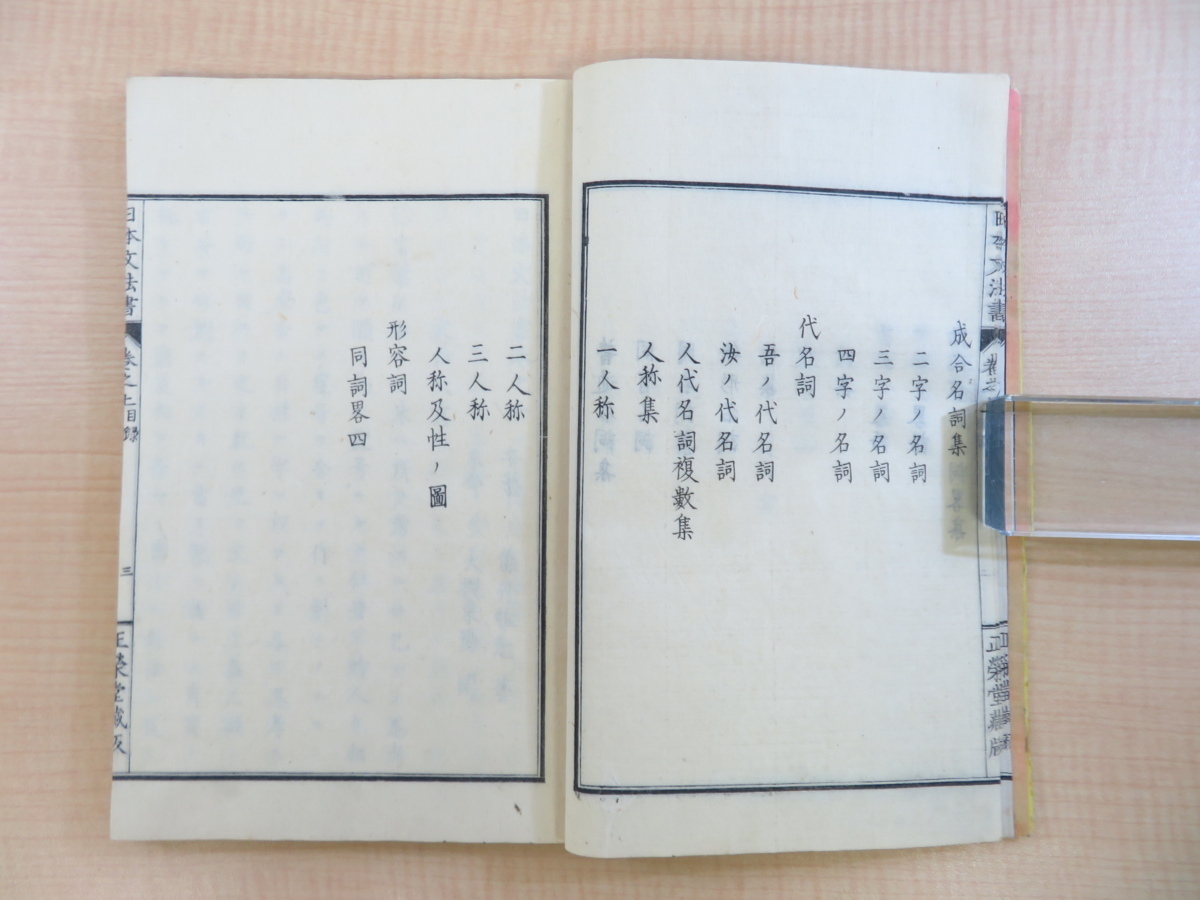 成合名詞集
二字ノ名詞
三字ノ名詞
四字ノ名詞
代名詞
吾ノ代名詞
汝ノ代名詞
人代名詞複數集
人称集
一人称
二人称
三人称
人称及性ノ圖
形容詞
同詞畧四
日本文法書
卷之上目録
三
正榮堂藏版